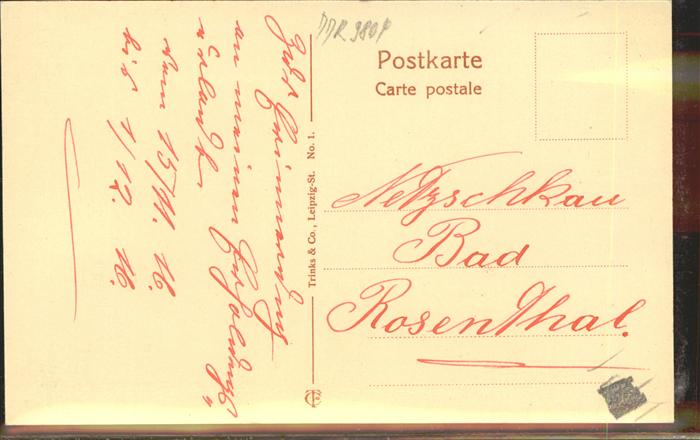 Zur Erinnerung
an meinen Erholungs-
urlaub
vom 15/11. 16.
bis 1/12. 16.
DDR 980P
Postkarte
Carte postale
Trinks & Co., Leipzig-St. No. 1.
Netzschkau
Bad
Rosenthal.